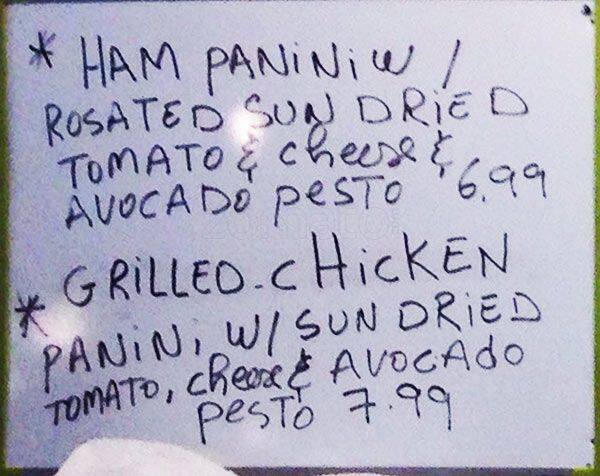 * HAM PANINI W/
ROSATED SUN DRIED
TOMATO & cheese &
AVOCADO pesto 6.99
* GRILLED-CHICKEN
PANINI, W/ SUN DRIED
TOMATO, cheese & AVOCADO
pesto 7.99